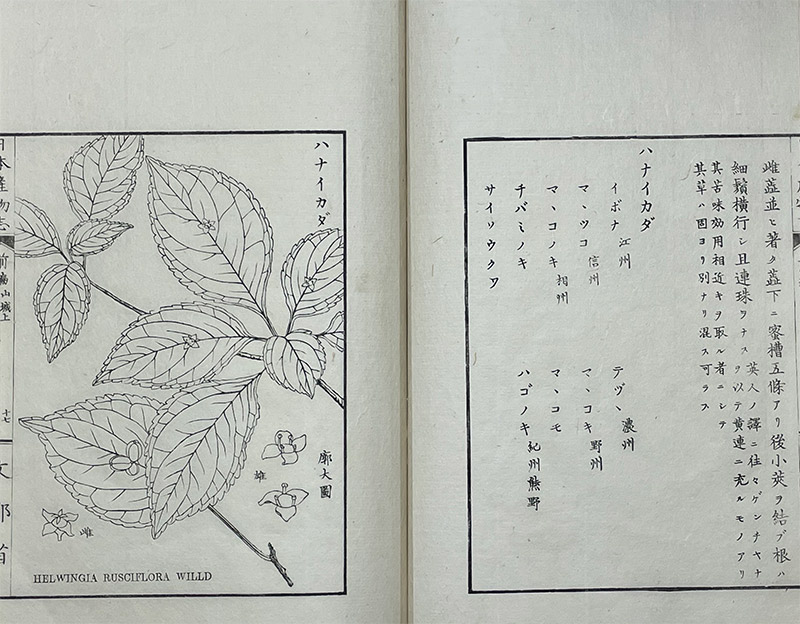 雌蕋並ヒ著ク蕋下ニ蜜槽五條アリ後小莢ヲ結ブ根ハ
細鬚横行シ且連珠ヲナス
英人ノ譯ニ往々ゲンチヤナ
ヲ以テ黄連ニ充ルモノアリ
其苦味効用相近キヲ取ル者ニシテ
其草ハ固ヨリ別ナリ混ス可ラズ
ハナイカダ
イボナ 江州
テヅヽ 濃州
マヽツコ 信州
マヽコキ 野州
マヽコノキ 相州
マヽコモ
チバミノキ
ハゴノキ 紀州熊野
サイソウクワ
ハナイカダ
廓大圖
雄
雌
HELWINGIA RUSCIFLORA WILLD
日本産物志
前
山城上
十七
文部省